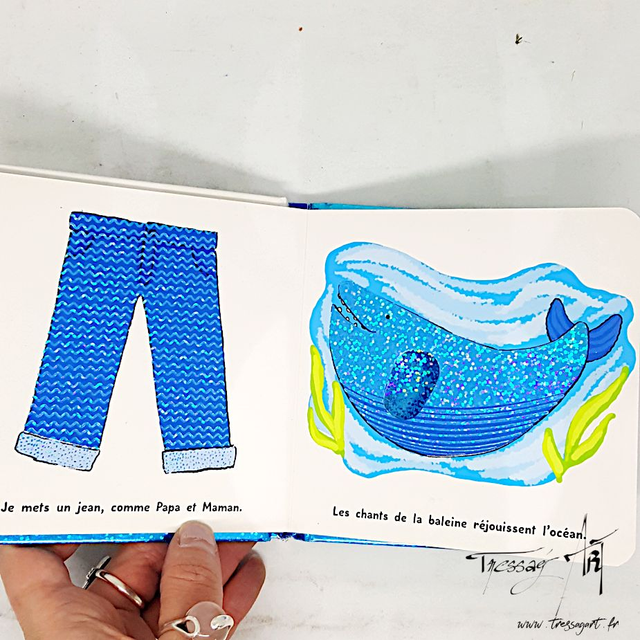 Je mets un jean, comme Papa et Maman.
Les chants de la baleine réjouissent l'océan.
Tressag'Art
www.tressagart.fr